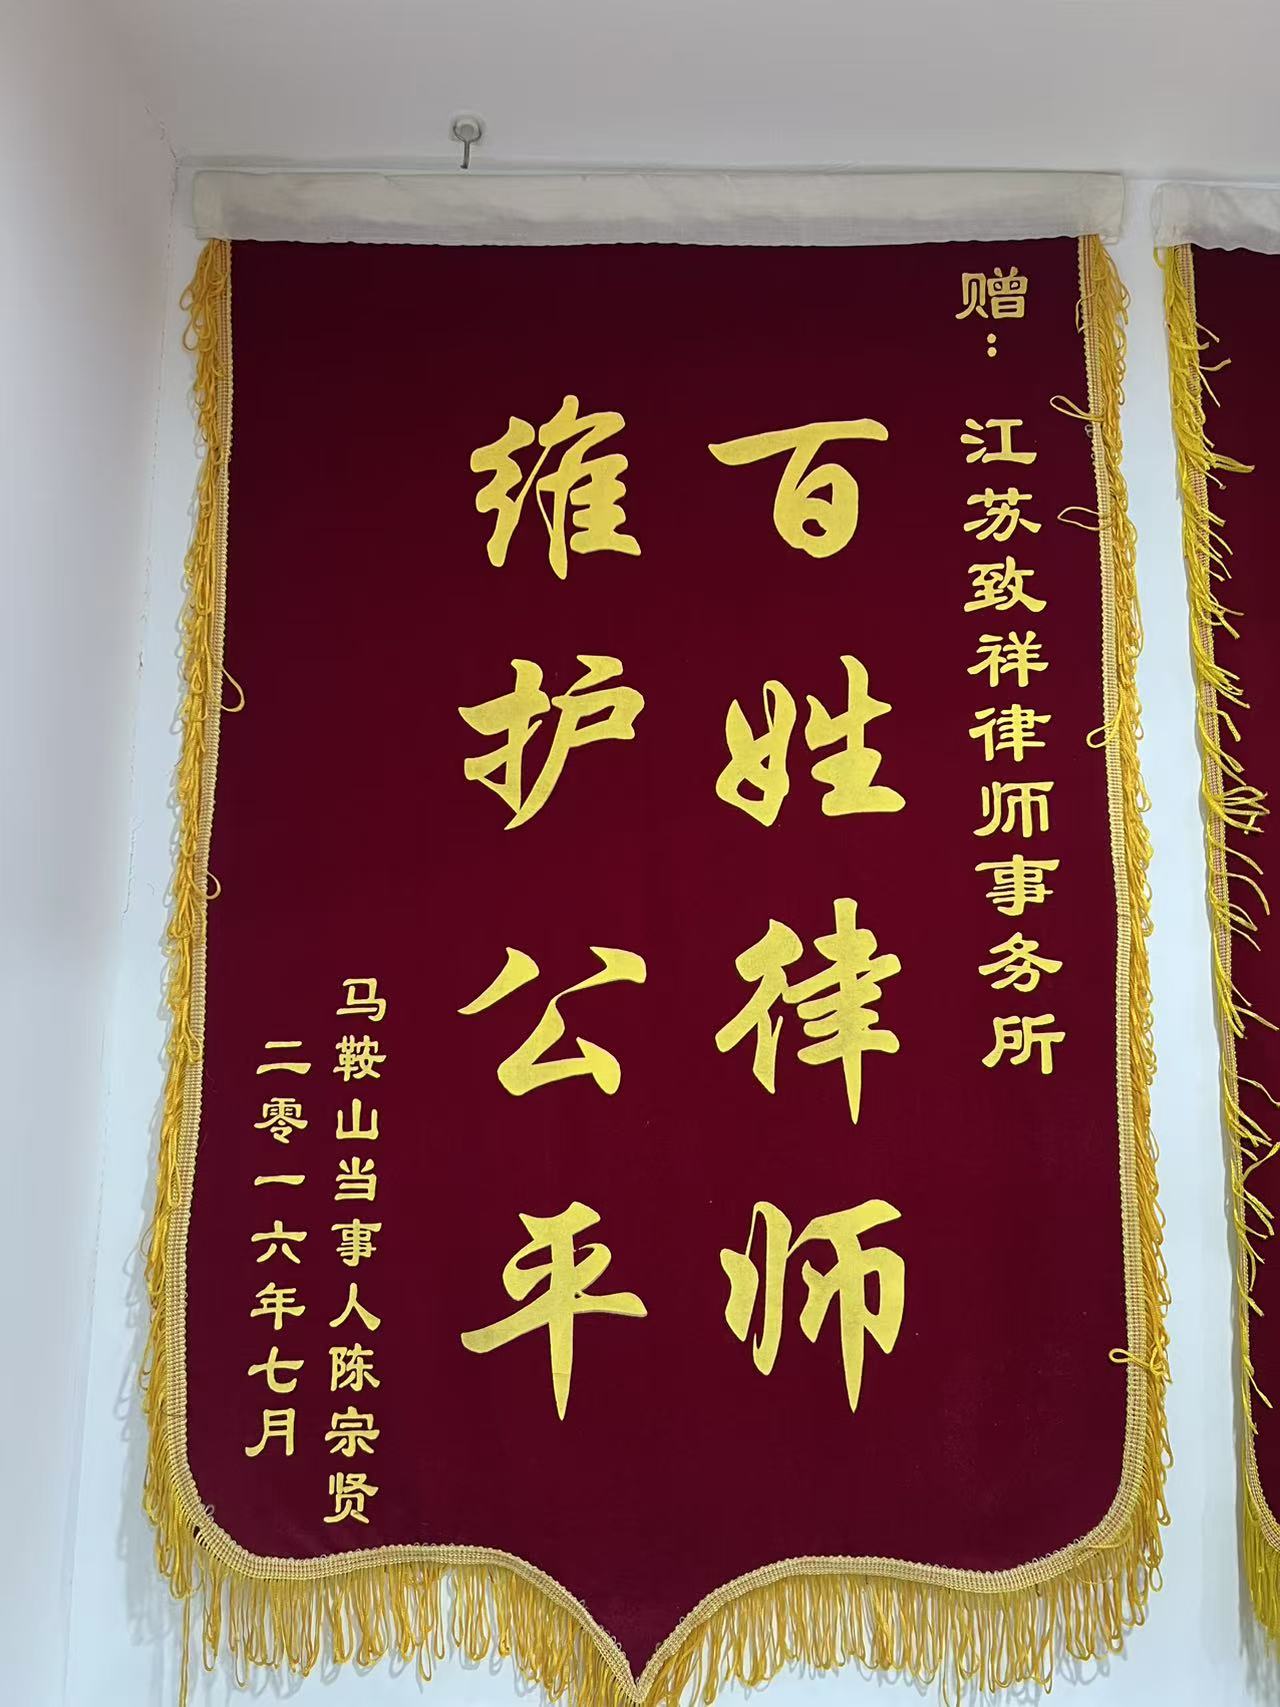 赠：江苏致祥律师事务所
百姓律师
维护公平
马鞍山当事人陈宗贤
二零一六年七月